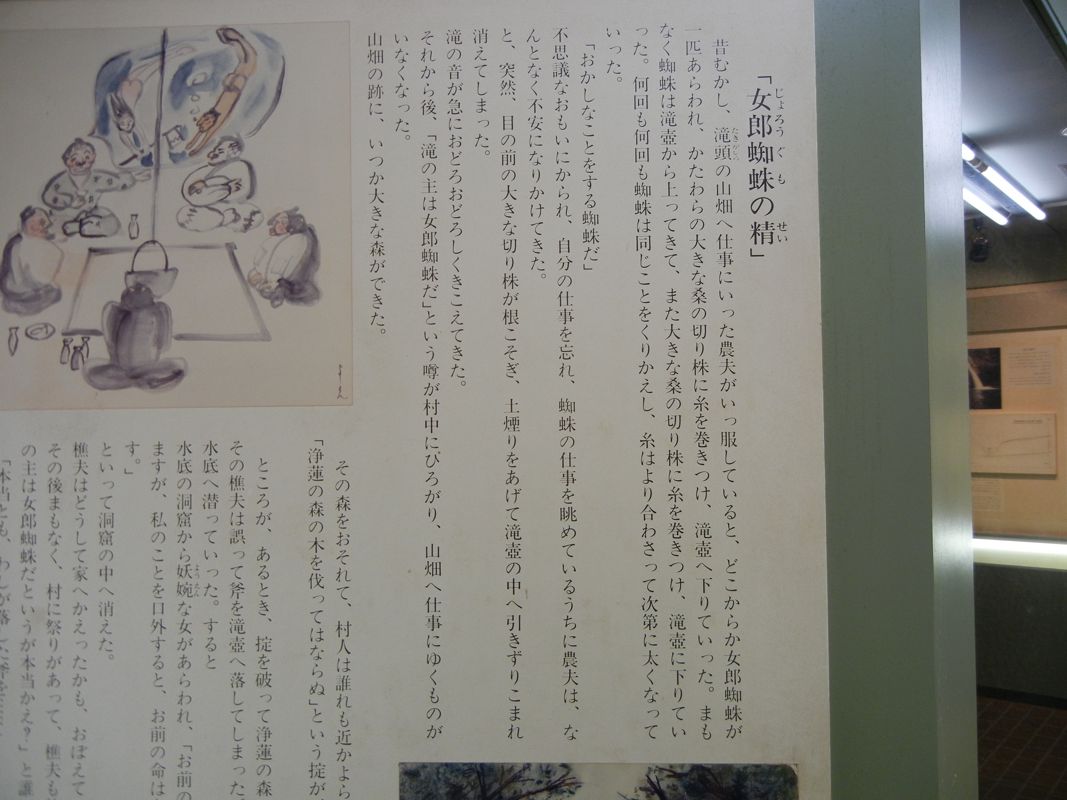 「女郎蜘蛛の精」
じょろうぐも せい
昔むかし、滝頭の山畑へ仕事にいった農夫がいっ服していると、どこからか女郎蜘蛛が
たきがしら
一匹あらわれ、かたわらの大きな桑の切り株に糸を巻きつけ、滝壺へ下りていった。まも
なく蜘蛛は滝壺から上ってきて、また大きな桑の切り株に糸を巻きつけ、滝壺に下りてい
った。何回も何回も蜘蛛は同じことをくりかえし、糸はより合わさって次第に太くなって
いった。
「おかしなことをする蜘蛛だ」
不思議なおもいにかられ、自分の仕事を忘れ、蜘蛛の仕事を眺めているうちに農夫は、な
んとなく不安になりかけてきた。
と、突然、目の前の大きな切り株が根こそぎ、土煙りをあげて滝壺の中へ引きずりこまれ
消えてしまった。
滝の音が急におどろおどろしくきこえてきた。
それから後、「滝の主は女郎蜘蛛だ」という噂が村中にひろがり、山畑へ仕事にゆくものが
いなくなった。
山畑の跡に、いつか大きな森ができた。
その森をおそれて、村人は誰れも近かよら
「浄蓮の森の木を伐ってはならぬ」という掟が
ところが、あるとき、掟を破って浄蓮の森
その樵夫は誤って斧を滝壺へ落してしまった
水底へ潜っていった。すると
水底の洞窟から妖婉な女があらわれ、「お前の
ようえん
ますが、私のことを口外すると、お前の命は
す。」
といって洞窟の中へ消えた。
樵夫はどうして家へかえったかも、おぼえて
その後まもなく、村に祭りがあって、樵夫も
の主は女郎蜘蛛だというが本当かえ?」と誰
「本当とも、わしが落した斧を